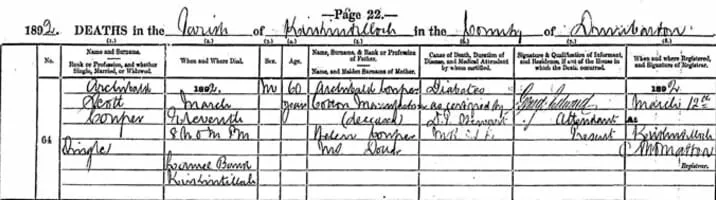 —Page 22.—
1892. DEATHS in the Parish of Kirkintilloch in the County of Dumbarton
(1.) (2.) (3.) (4.) (5.) (6.) (7.) (8.)
No.
Name and Surname.
Rank or Profession, and whether Single, Married, or Widowed.
When and Where Died.
Sex.
Age.
Name, Surname, & Rank or Profession of Father.
Name, and Maiden Surname of Mother.
Cause of Death, Duration of Disease, and Medical Attendant by whom certified.
Signature & Qualification of Informant, and Residence, if out of the House in which the Death occurred.
When and where Registered, and Signature of Registrar.
64
Archibald
Scott
Couper
Single
1892.
March
Eleventh
M
Lanece Bank
Kirkintilloch
M
60
years
Archibald Couper
Cotton Manufacturer
(deceased)
Helen Couper
M.S. Dove
Diabetes
as certified by
D. P. Stewart
Attendant
Present
1892
March 12th
At
Kirkintilloch
Registrar.